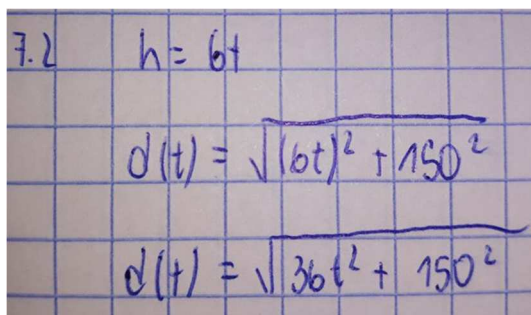 7.2 h = 6t
d(t) = √(6t)² + 150²
d(t) = √36t² + 150²